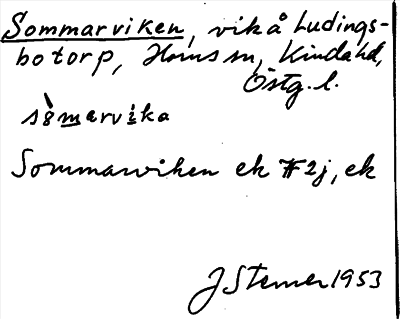 Sommarviken, vik å Ludings-
botorp, Horns sn, Kinda hd,
Östg. l.
sòmarvika
Sommarviken ek #2j, ek
J Stemer 1953